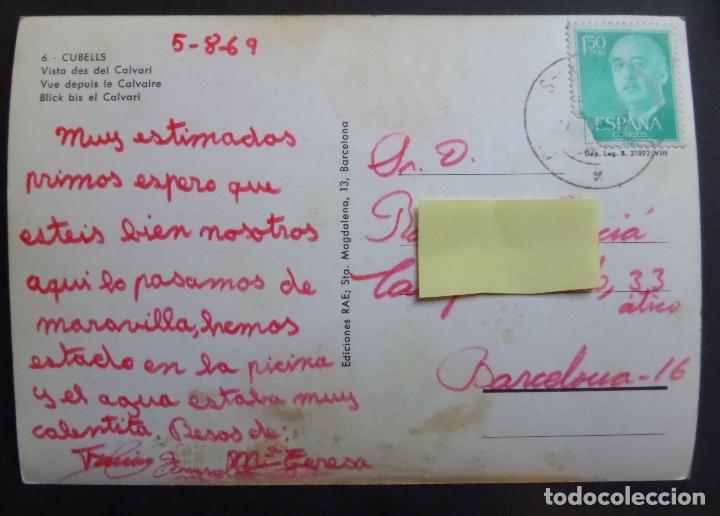 5-8-69
6 - CUBELLS
Vista des del Calvari
Vue depuis le Calvaire
Blick bis el Calvari
Muy estimados
primos espero que
esteis bien nosotros
aqui lo pasamos de
maravilla, hemos
estado en la picina
y el agua estaba muy
calentita. Besos de:
Mª Teresa
Ediciones RAE; Sta. Magdalena, 13, Barcelona
1,50
ESPAÑA
CORREOS
Dep. Leg. B. 21893-VIII
Sr. D.
33
ático
Barcelona-16
todocoleccion.net